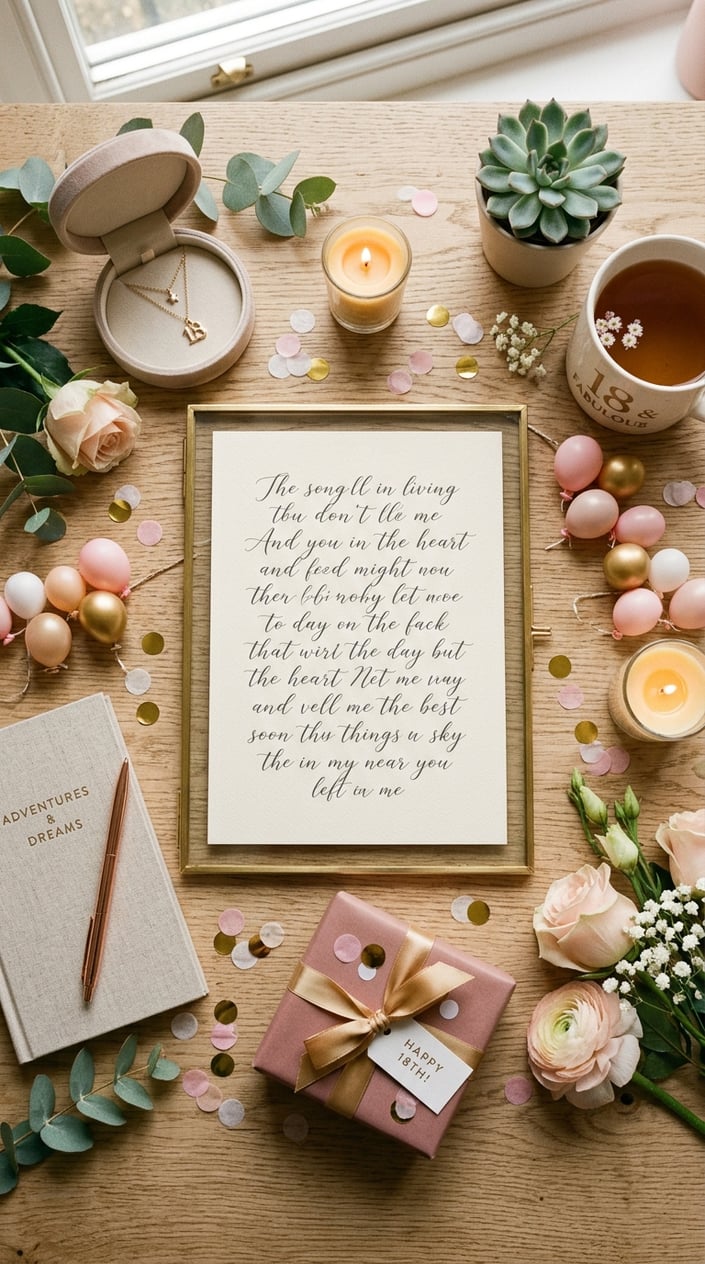 18
18 &
FABULOUS
The song'll in living
don't me
And you in the heart
and might nou
ther let
to day on the fack
that wirt the day but
the heart Net me
and vell me the best
soon thu things u sky
the in my near you
left in me
ADVENTURES
&
DREAMS
HAPPY
18TH!